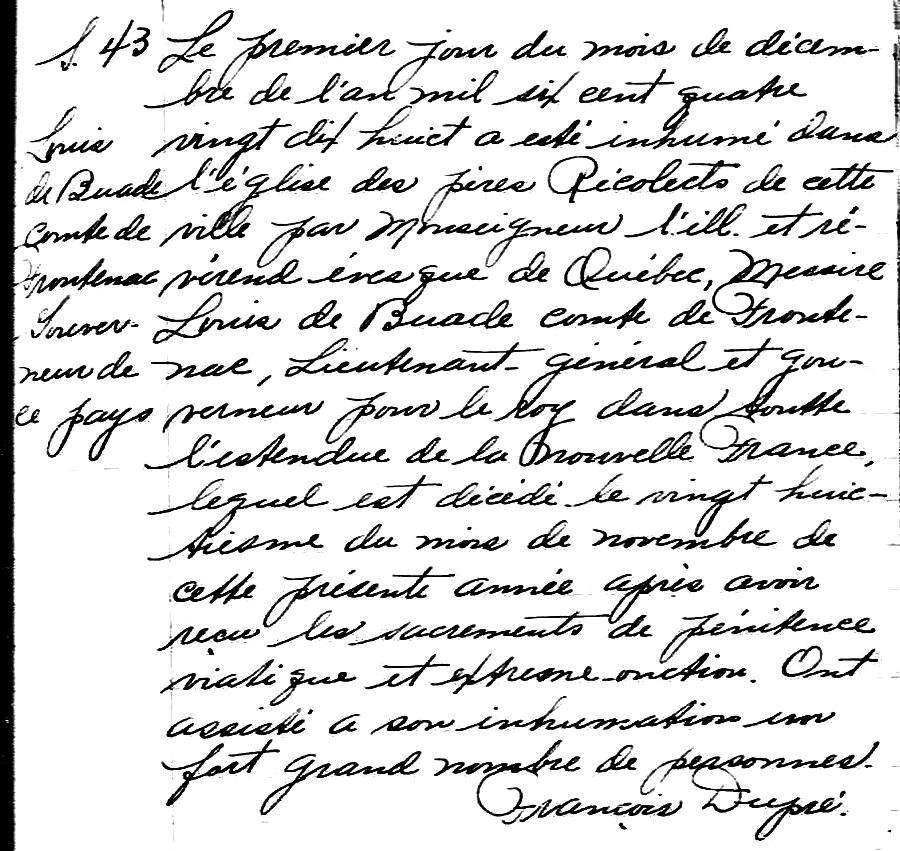 S. 43
Louis
de Buade
comte de
Frontenac
Gouver-
neur de
ce pays
Le premier jour du mois de décem-
bre de l'an mil six cent quatre
vingt dix huict a esté inhumé dans
l'église des pères Récolects de cette
ville par Monseigneur l'ill. et ré-
vérend évesque de Québec, Messire
Louis de Buade comte de Fronte-
nac, Lieutenant-général et gou-
verneur pour le roy dans toutte
l'estendue de la Nouvelle France,
lequel est décédé le vingt huic-
tiesme du mois de novembre de
cette présente année après avoir
recu les sacrements de pénitence
viatique et extresme-onction. Ont
assisté a son inhumation un
fort grand nombre de personnes.
François Dupré.